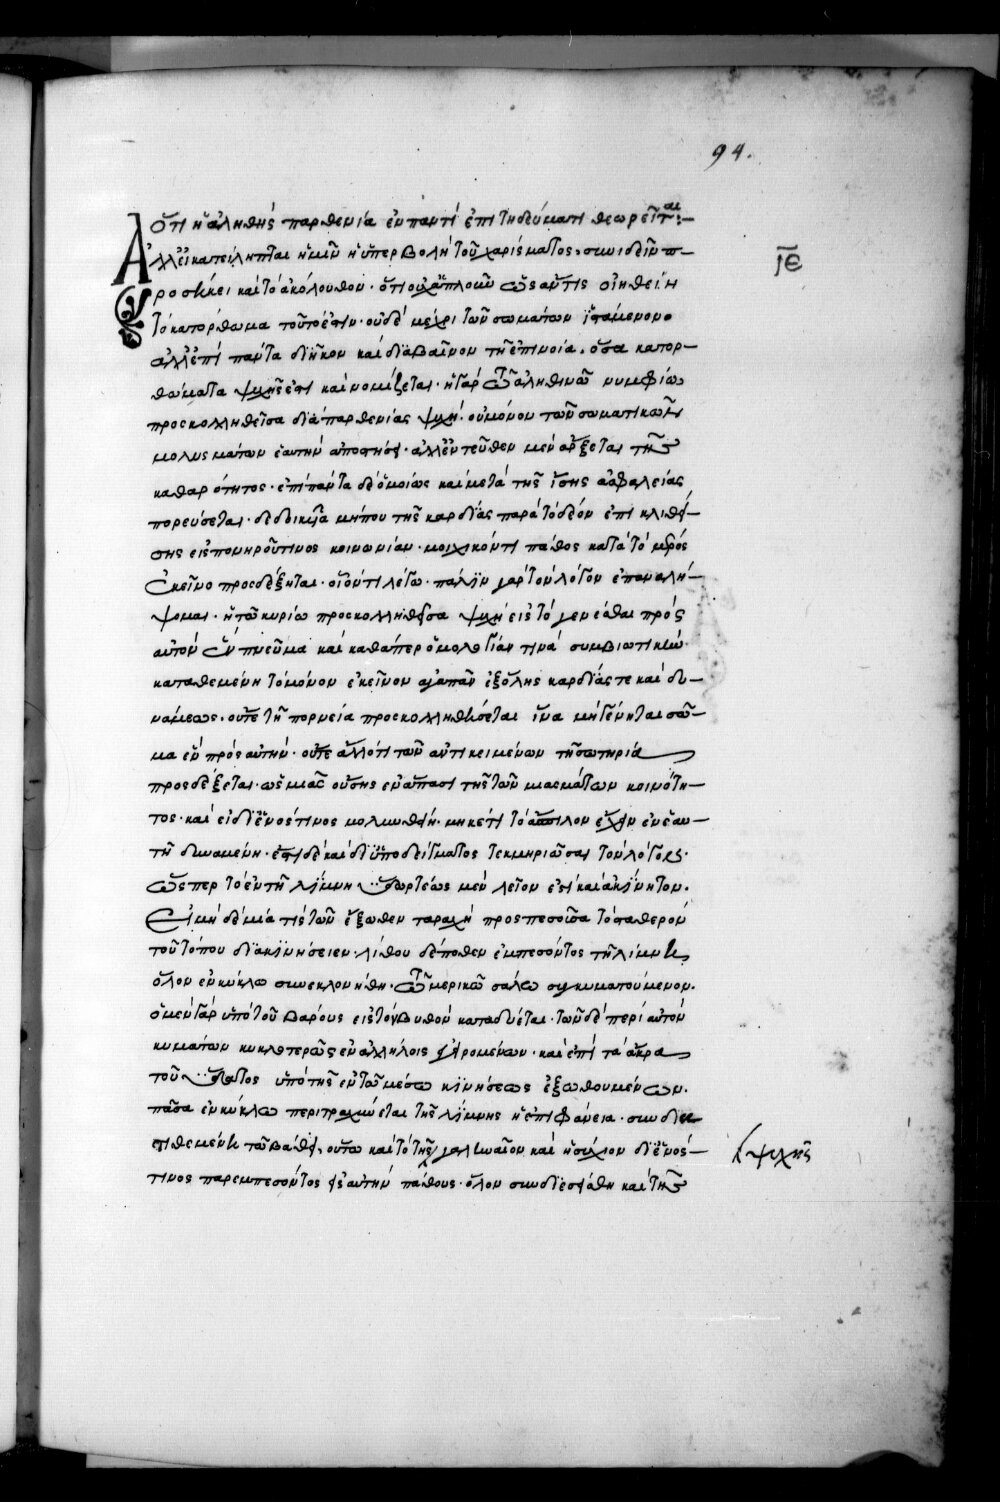 94.
Ὅτι ἡ ἀληθὴς παρθενία ἐν παντὶ ἐπιτηδεύματι θεωρεῖται:—
Ἀλλ' εἰ κατείληπται ἡμῖν ἡ ὑπερβολὴ τοῦ χαρίσματος, συνιδεῖν π—
ιε
ροσήκει καὶ τὸ ἀκόλουθον· ὅτι οὐχ ἁπλοῦν ὡς ἄν τις οἰηθείη
τὸ κατόρθωμα τοῦτό ἐστιν· οὐδὲ μέχρι τῶν σωμάτων ἱστάμενον·
ἀλλ' ἐπὶ πάντα διῆκον καὶ διαβαῖνον τῇ ἐπινοία, ὅσα κατορ—
θώματα ψυχῆς ἐστι καὶ νομίζεται· ἡ γὰρ τῶ ἀληθινῶ νυμφίω
προσκολληθεῖσα διὰ παρθενίας ψυχή· οὐ μόνον τῶν σωματικῶν
μολυσμάτων ἑαυτὴν ἀποστήσει· ἀλλ' ἐντεῦθεν μὲν ἄρξεται τῆς
καθαρότητος· ἐπὶ πάντα δὲ ὁμοίως καὶ μετὰ τῆς ἴσης ἀσφαλείας
πορεύσεται· δεδοικυῖα μήπου τῆς καρδίας παρὰ τὸ δέον ἐπικλιθεί—
σης εἰς πονηροῦ τινος κοινωνίαν· μοιχικόν τι πάθος κατὰ τὸ μέρος
ἐκεῖνο προσδέξηται· οἷόν τι λέγω· πάλιν γὰρ τὸν λόγον ἐπαναλή—
ψομαι· ἡ τῶ κυρίω προσκολληθεῖσα ψυχὴ εἰς τὸ γενέσθαι πρὸς
αὐτὸν ἓν πνεῦμα καὶ καθάπερ ὁμολογίαν τινὰ συμβιωτικὴν
καταθεμένη τὸ μόνον ἐκεῖνον ἀγαπᾶν ἐξ ὅλης καρδίας τε καὶ δυ—
νάμεως, οὔτε τῇ πορνεία προσκολληθήσεται ἵνα μὴ γένηται σῶ—
μα ἓν πρὸς αὐτήν· οὔτε ἄλλό τι τῶν ἀντικειμένων τῇ σωτηρία
προσδέξεται· ὡς μιᾶς οὔσης ἐν ἅπασι τῆς τῶν μιασμάτων κοινότη—
τος· καὶ εἰ δι' ἑνός τινος μολυνθείη· μηκέτι τὸ ἄσπιλον ἔχειν ἐν ἑαυ—
τῇ δυναμένη· ἔστι δὲ καὶ δι' ὑποδείγματος τεκμηριῶσαι τὸν λόγον·
ὥσπερ τὸ ἐν τῇ λίμνη ὕδωρ τέως μὲν λεῖόν ἐστι καὶ ἀκίνητον·
εἰ μὴ δὲ μία τις τῶν ἔξωθεν ταραχὴ προσπεσοῦσα τὸ σταθερὸν
τοῦ τόπου διακινήσειεν· λίθου δέ ποθεν ἐμπεσόντος τῇ λίμνη
ὅλον ἐν κύκλω συνεκλονήθη· τῶ μερικῶ σάλω συγκυματούμενον.
ὁ μὲν γὰρ ὑπὸ τοῦ βάρους εἰς τὸν βυθὸν καταδύεται· τῶν δὲ περὶ αὐτὸν
κυμάτων κυκλοτερῶς ἐν ἀλλήλοις ἐγειρομένων· καὶ ἐπὶ τὰ ἄκρα
τοῦ ὕδατος ὑπὸ τῆς ἐν τῶ μέσω κινήσεως ἐξωθουμένων.
πᾶσα ἐν κύκλω περιτραχύνεται τῆς λίμνης ἡ ἐπιφάνεια· συνδια
τιθεμένη τῶ βάθει, οὕτω καὶ τὸ τῆς γαληναῖον καὶ ἡσύχιον δι' ἑνός—
ψυχῆς
τινος παρεμπεσόντος εἰς αὐτὴν πάθους· ὅλον συνδιεσείσθη καὶ τῆς